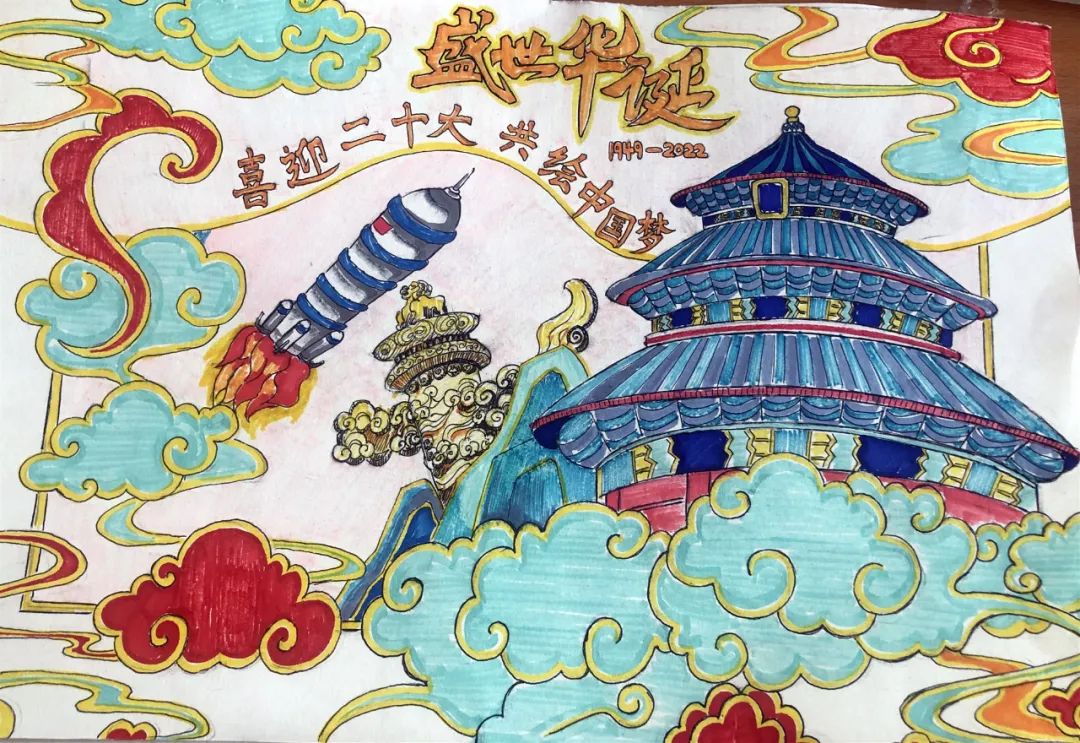 盛世华诞
喜迎二十大 共绘中国梦
1949-2022